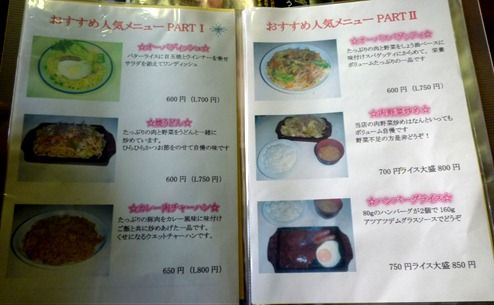 おすすめ人気メニュー PART Ⅰ
☆オーバディッシュ☆
バターライスに目玉焼とウインナーを乗せ
サラダを組えてワンディッシュ
600円 (L700円)
☆焼うどん☆
たっぷりの肉と野菜をうどんと一緒に
炒めています。
ひらひらかつお節をのせて自慢の味です
600円 (L750円)
☆カレー肉チャーハン☆
たっぷりの豚肉をカレー風味に味付け
ご飯と共に炒めあげた一品です。
くせになるウエットチャーハンです。
650円 (L800円)
おすすめ人気メニュー PART Ⅱ
☆オーバスパゲッティ☆
たっぷりの肉と野菜をしょう油ベースに
味付けスパゲッティにからめて、栄養
ボリュームたっぷりの一品です
600円 (L750円)
☆肉野菜炒め☆
当店の肉野菜炒めはなんといっても
ボリューム自慢です
野菜不足の方是非どうぞ!
700円ライス大盛 800円
☆ハンバーグライス☆
80gのハンバーグが2個で 160g
アツアツデムグラスソースでどうぞ
750円ライス大盛 850円